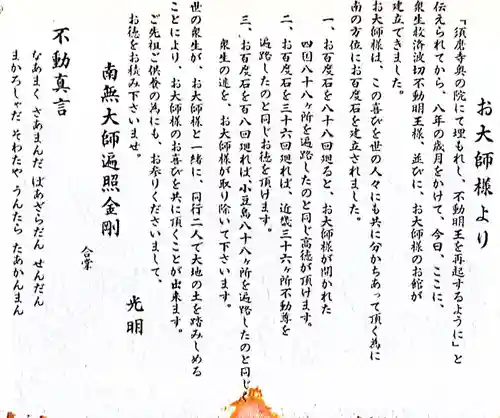 お大師様より
「須磨寺奥の院にて埋もれし、不動明王を再起するように」と
伝えられてから、八年の歳月をかけて、今日、ここに、
衆生救済波切不動明王様、並びに、お大師様のお館が
建立できました。
お大師様は、この喜びを世の人々にも共に分かちあって頂く為に
南の方位にお百度石を建立されました。
一、お百度石を八十八回廻ると、お大師様が開かれた
四国八十八ヶ所を遍路したのと同じ高徳が頂けます。
二、お百度石を三十六回廻れば、近畿三十六ヶ所不動尊を
遍路したのと同じお徳を頂けます。
三、お百度石を百八回廻れば、小豆島八十八ヶ所を遍路したのと同じく
衆生の達を、お大師様が取り除いて下さいます。
世の衆生が、お大師様と一緒に、同行二人で大地の土を踏みしめる
ことにより、お大師様のお喜びを共に頂くことが出来ます。
ご先祖ご供養の為にも、お参りくださいまして、
お徳をお積み下さいませ。
南無大師遍照金剛
合掌
光明
不動真言
なあまく さあまんだ ばあざらだん せんだん
まかろしゃだ そわたや うんたら たあかんまん